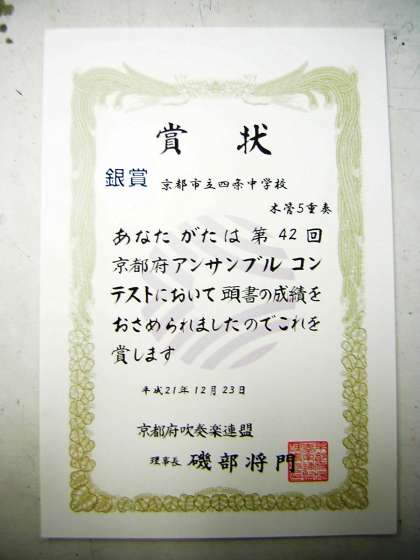 賞状
銀賞 京都市立四条中学校
木管5重奏
あなたがたは第42回
京都府アンサンブルコン
テストにおいて頭書の成績を
おさめられましたのでこれを
賞します
平成21年12月23日
京都府吹奏楽連盟
理事長 磯部将門